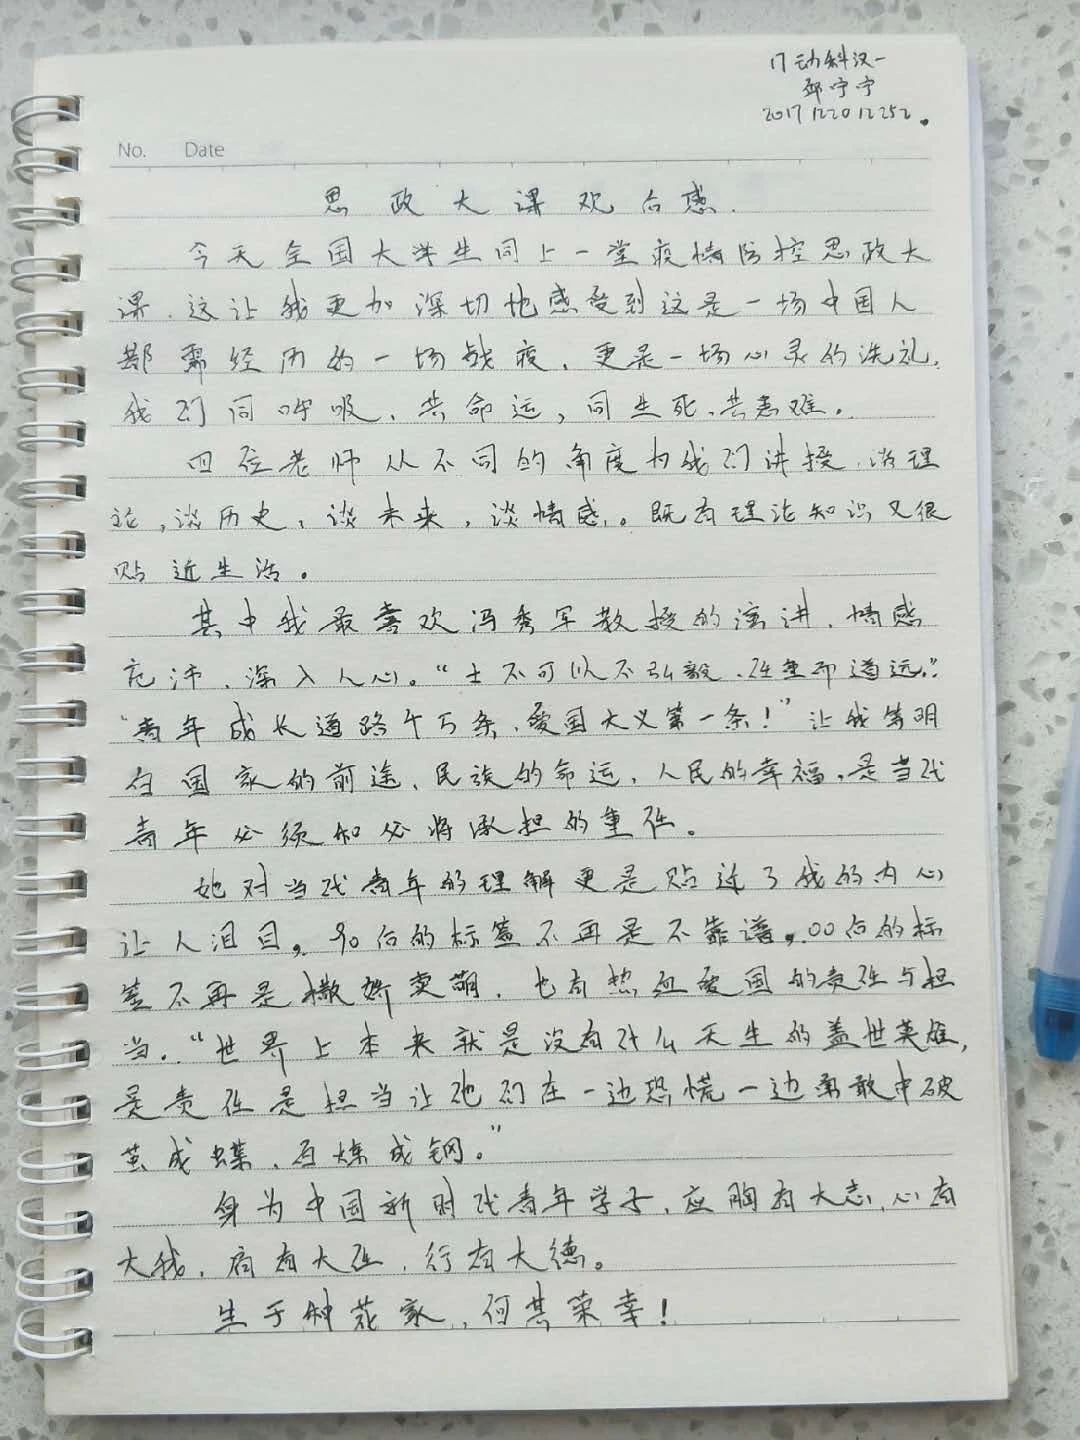 17动科汉一
邹宁宁
2017122012252.
No. Date
思政大课观后感.
今天全国大学生同上一堂疫情防控思政大
课,这让我更加深切地感受到这是一场中国人
都需经历的一场战疫,更是一场心灵的洗礼,
我们同呼吸、共命运,同生死、共患难。
四位老师从不同的角度为我们讲授,谈理
论,谈历史,谈未来,谈情感,。既有理论知识又很
贴近生活。
其中我最喜欢冯秀军教授的演讲,情感
充沛,深入人心。“士不可以不弘毅,任重而道远。”
“青年成长道路千万条,爱国大义第一条!”让我等明
白国家的前途,民族的命运,人民的幸福,是当代
青年必须和必将承担的重任。
她对当代青年的理解更是贴近了我的内心
让人泪目。90后的标签不再是不靠谱,00后的标
签不再是撒娇卖萌,也有热血爱国的责任与担
当。“世界上本来就是没有什么天生的盖世英雄,
是责任是担当让他们在一边恐慌一边勇敢中破
茧成蝶,百炼成钢。”
身为中国新时代青年学子,应胸有大志,心有
大我,肩有大任,行有大德。
生于种花家,何其荣幸!